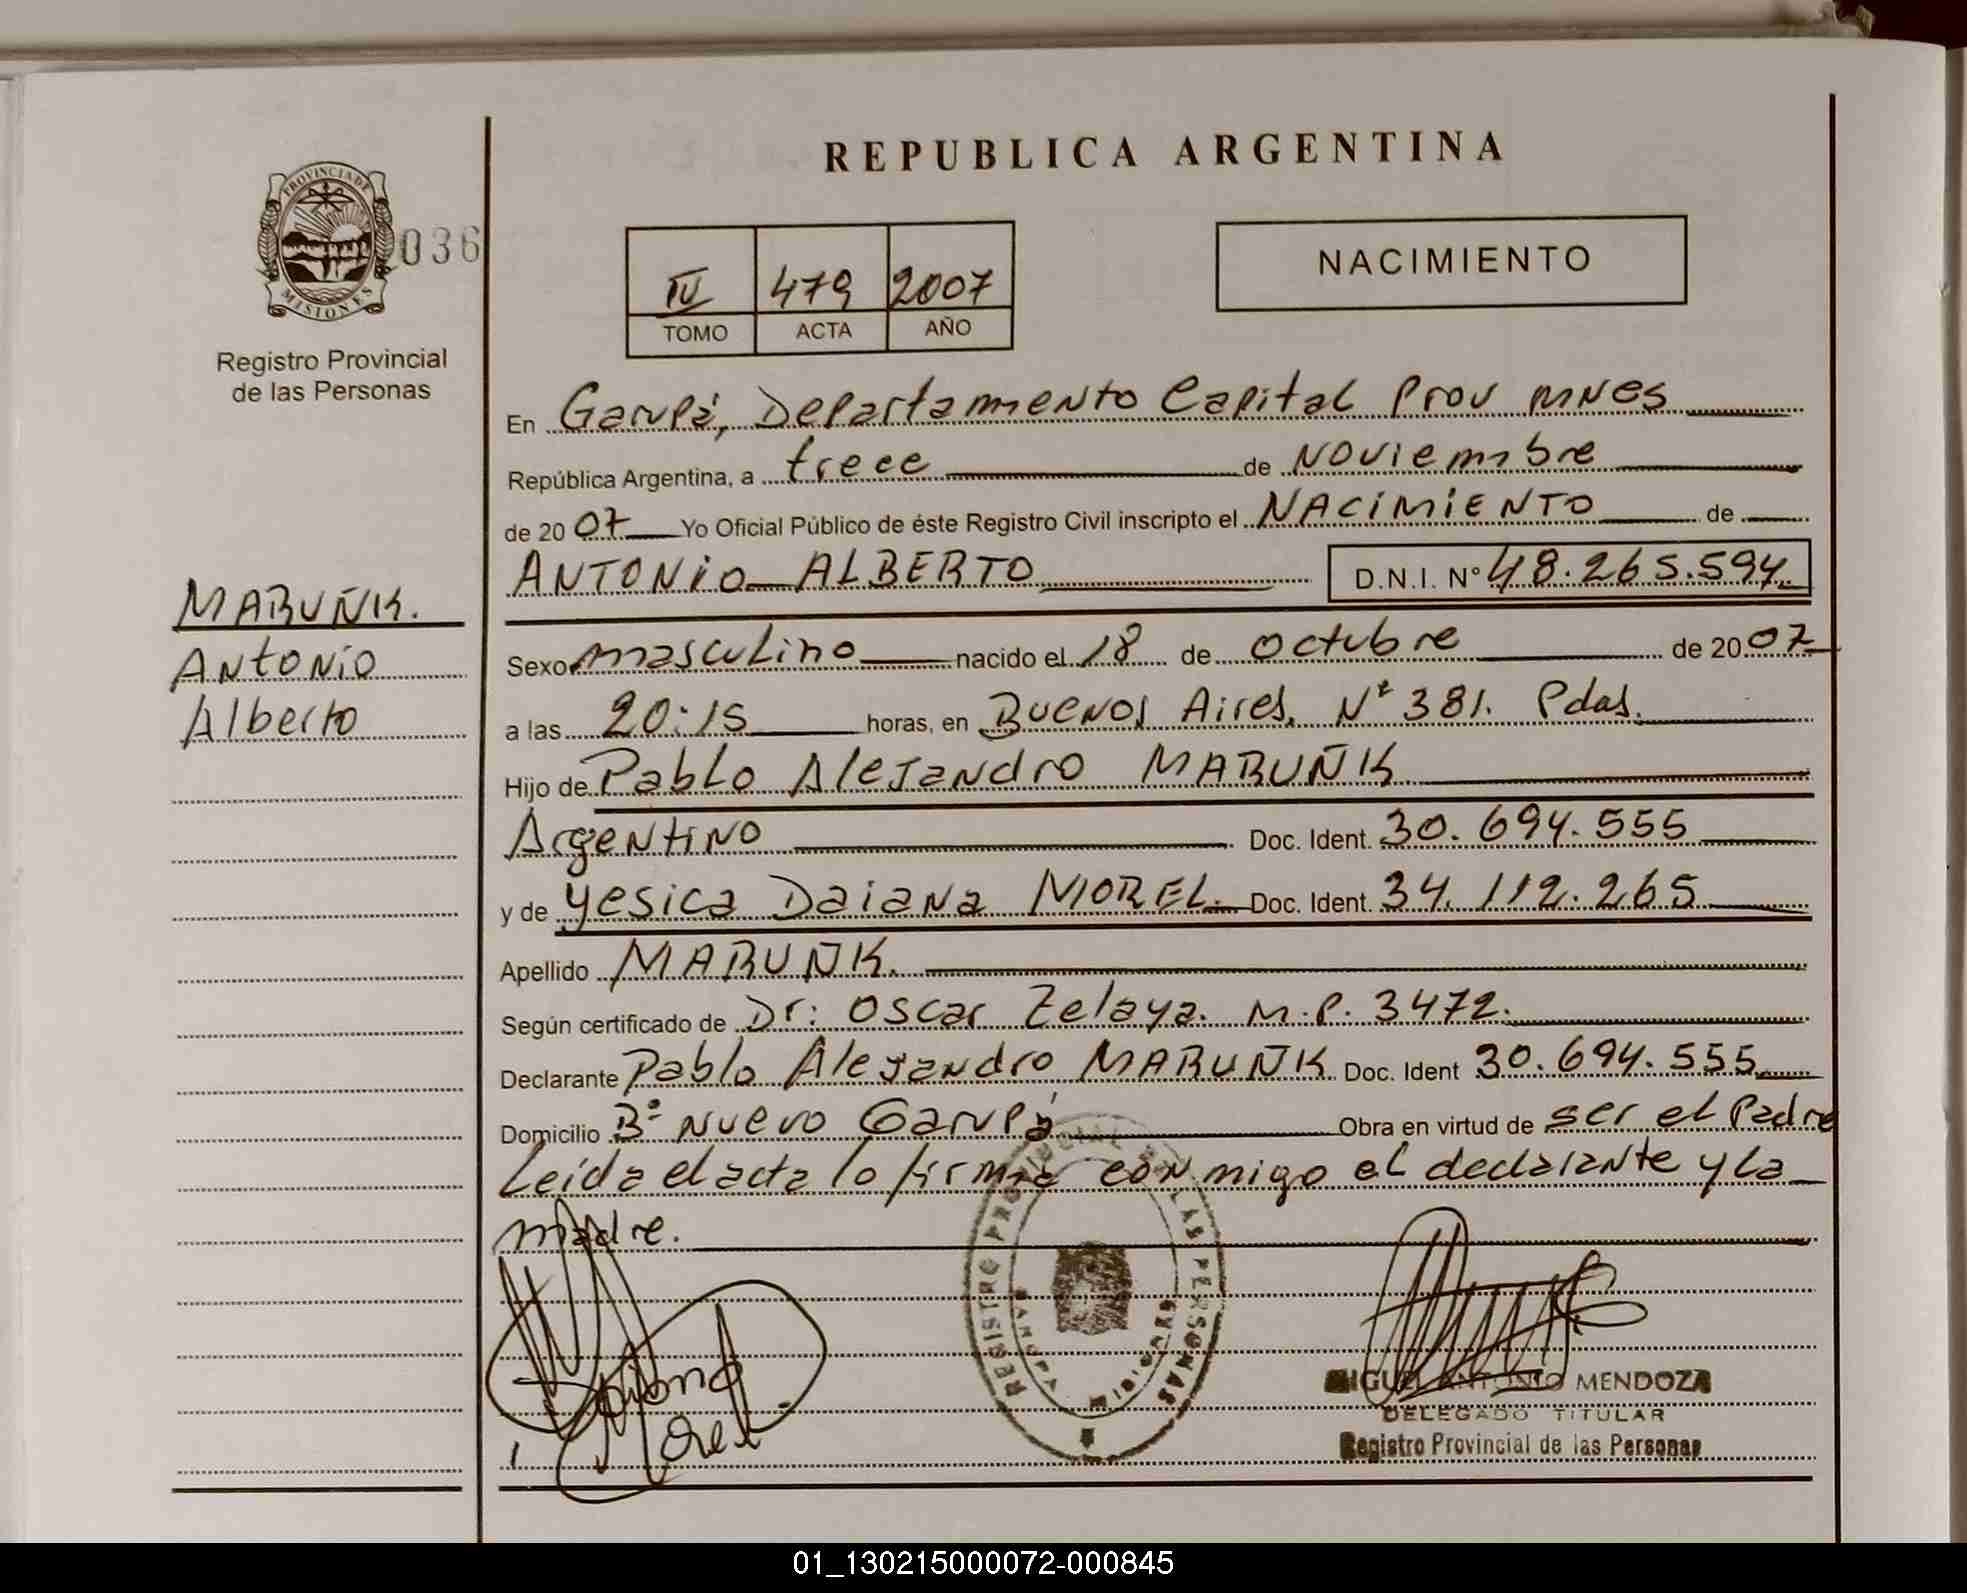 REPUBLICA ARGENTINA
PROVINCIA DE
MISIONES
036
Registro Provincial
de las Personas
IV 479 2007
TOMO ACTA AÑO
NACIMIENTO
En Garupá, Departamento Capital Prov mnes
República Argentina, a trece de Noviembre
de 2007 Yo Oficial Público de éste Registro Civil inscripto el NACIMIENTO de
ANTONIO ALBERTO D.N.I. N° 48.265.594
MARUÑK.
Antonio
Alberto
Sexo masculino nacido el 18 de octubre de 2007
a las 20:15 horas, en Buenos Aires, N° 381. Pdas.
Hijo de Pablo Alejandro MARUÑK
Argentino Doc. Ident. 30.694.555
y de Yesica Daiana MOREL. Doc. Ident. 34.112.265
Apellido MARUÑK.
Según certificado de Dr: Oscar Zelaya. M.P. 3472.
Declarante Pablo Alejandro MARUÑK Doc. Ident 30.694.555
Domicilio B° Nuevo Garupá Obra en virtud de ser el Padre
Leída el acta lo firma conmigo el declarante y la
madre.
REGISTRO PROVINCIAL DE LAS PERSONAS
GARUPA
MISIONES
Morel
MIGUEL ANTONIO MENDOZA
DELEGADO TITULAR
Registro Provincial de las Personas
01_130215000072-000845